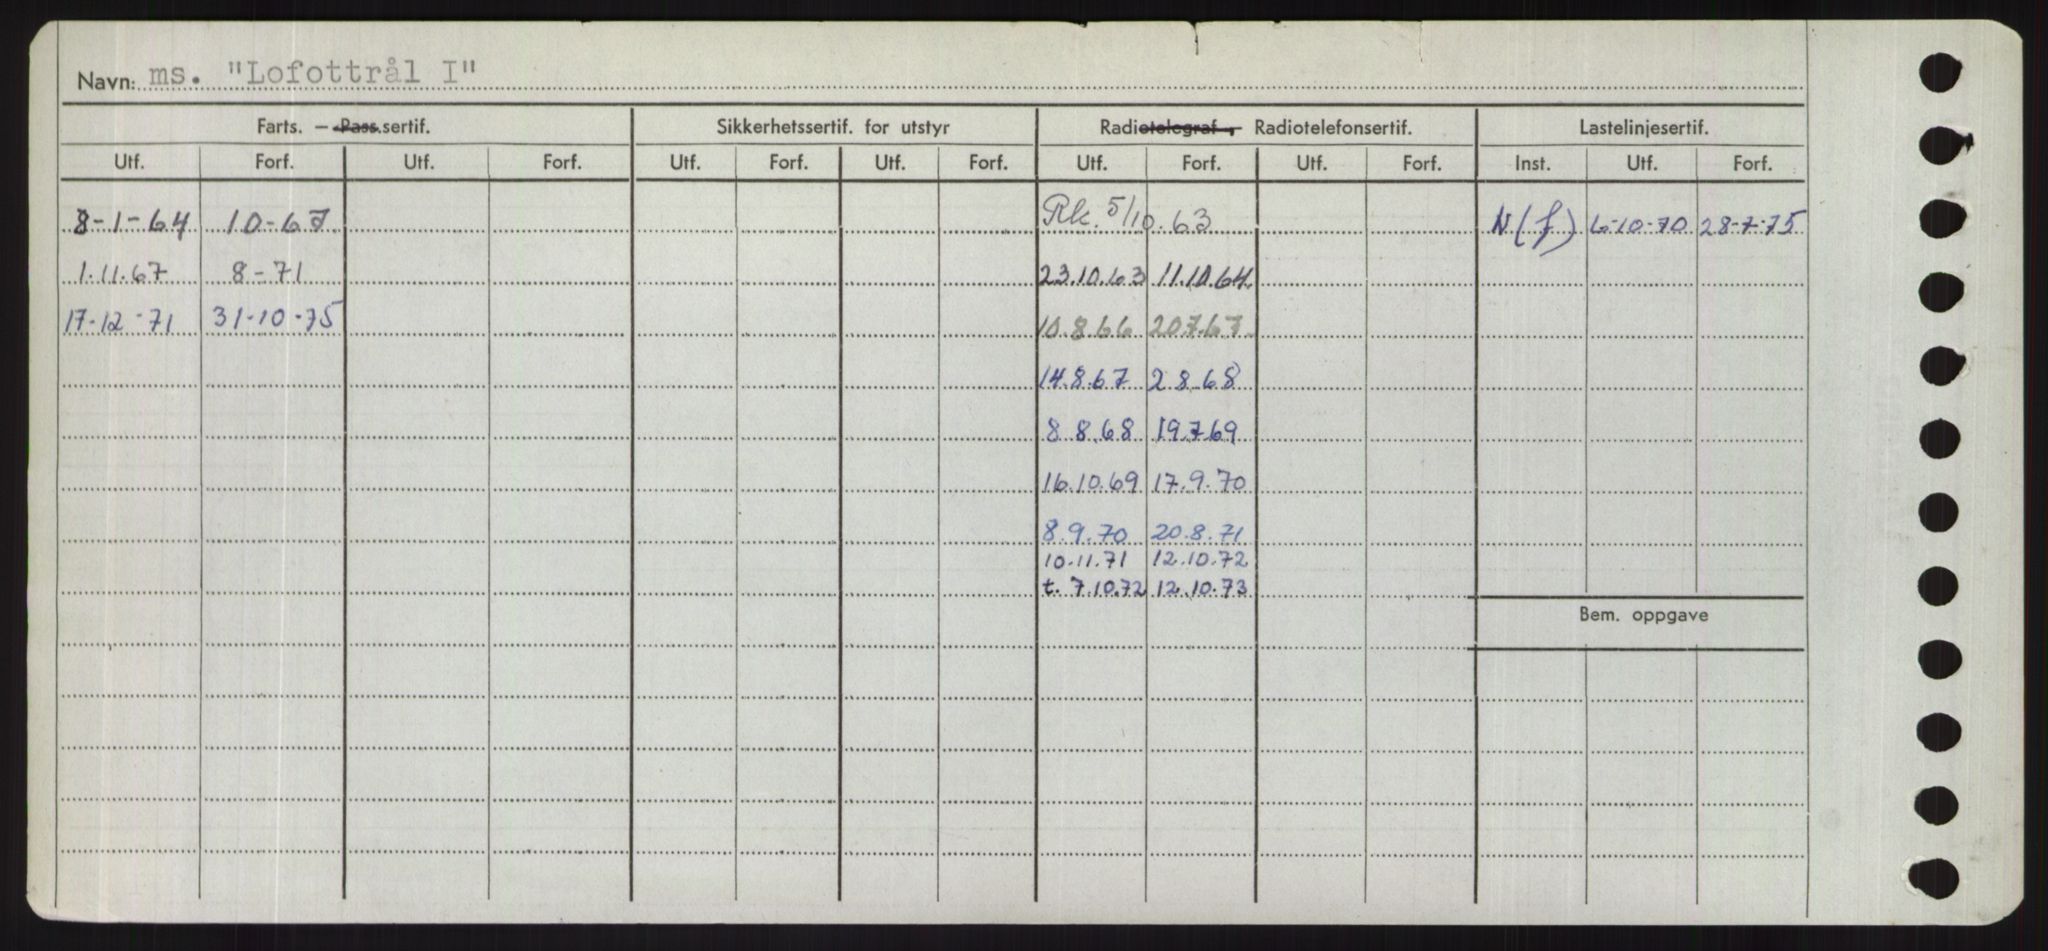 Navn: ms. "Lofottrål I"
Farts. – Pass.sertif. Sikkerhetssertif. for utstyr Radiotelegraf -, Radiotelefonsertif. Lastelinjesertif.
Utf. Forf. Utf. Forf. Utf. Forf. Utf. Forf. Utf. Forf. Utf. Forf. Inst. Utf. Forf.
8-1-64 10-67 Rk. 5/10.63 N(f) 6-10-70 28-7-75
1.11.67 8-71 23.10.63 11.10.64
17-12-71 31-10-75 10.8.66 20.7.67
14.8.67 2.8.68
8.8.68 19.7.69
16.10.69 17.9.70
8.9.70 20.8.71
10.11.71 12.10.72
t. 7.10.72 12.10.73
Bem. oppgave